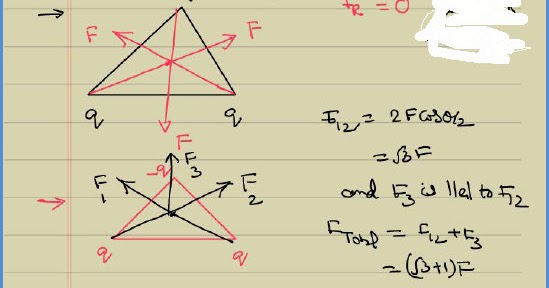 →
F_R = 0
F F
q q
F
-q F_3
F_1 F_2
q q
F_12 = 2F cosθ/2
= √3F
and F_3 is llel to F_12
F_Total = F_12 + F_3
= (√3+1)F